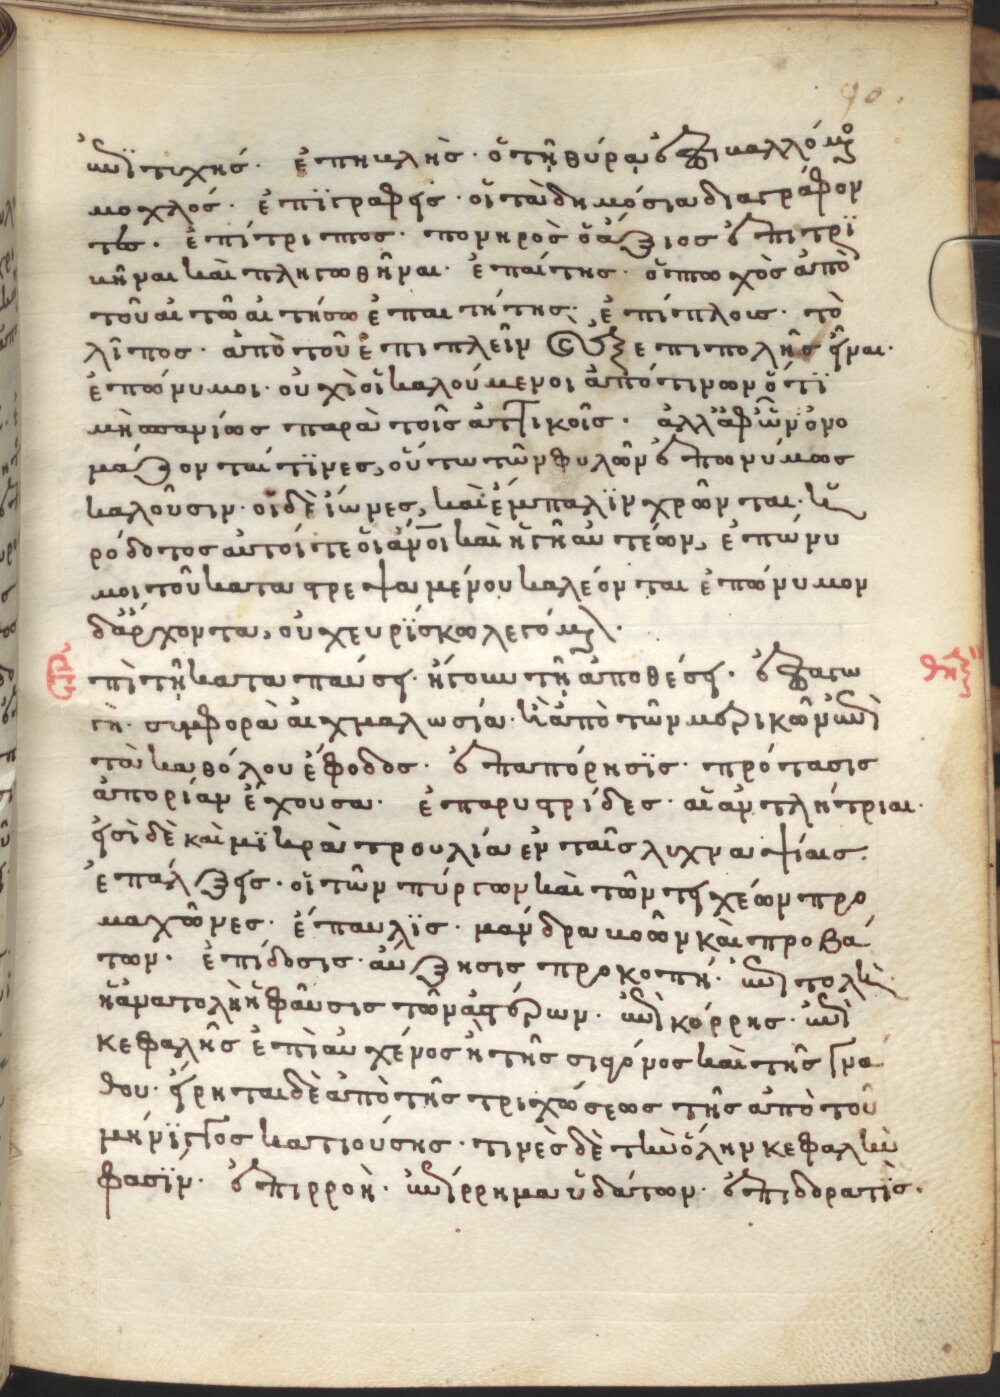 90.
ἐπιτυχής. ἐπηκλής. ὁ τῇ θύρᾳ ἐπικαλλόμε
μοχλός. ἐπϊγραφεῖς. οἱ τὰ δημόσια διαγράφον
τες. ἐπίτριπτος. πονηρὸς ὁ ἄξιος ἐπιτρι
βῆναι καὶ πληγωθῆναι. ἐπαίτης. ὁ πτωχὸς ἀπὸ
τοῦ αἰτῶ αἰτήσω ἐπαιτήτης. ἐπίπλοις. τὸ
λίπος. ἀπὸ τοῦ ἐπιπλεῖν ἐπιπολῆς εἶναι.
ἐπώνυμοι. οὐχὶ οἱ καλούμενοι ἀπό τινων ὅτϊ
μὴ σπανίως παρὰ τοῖς ἀττικοῖς. ἀλλ' ἀφ' ὧν ὀνο
μάζονταί τϊνες, οὕτω τῶν φυλῶν ἐπωνύμους
καλοῦσιν. οἱ δὲ ἴωνες, καὶ ἔμπαλϊν χρῶνται. ἡ
ρόδοτος αὐτοί τε οἱ ἄνοι καὶ ἡ γῆ αὐτέων, ἐπώνυ
μοι τοῦ καταστρεψαμένου καλέονται ἐπώνυμον
δ' ἄρχοντα, οὐχ εὑρϊσκω λεγόμε.
ἐπὶ τῇ καταπαύσει. ἤγουν τῇ ἀποθέσει. ἐπαγω
γὴ. συμφορὰ αἰχμαλωσία. ἢ ἀπὸ τῶν μερικῶν ἐπὶ
τὰ καθόλου ἔφοδος. ἐπαπόρησϊς. πρότασις
ἀπορίαν ἔχουσα. ἐπαρυστρίδες. αἱ ἀντλήτριαι.
εἰσὶ δὲ καὶ μϊκρὰ τρουλία ἐν ταῖς λυχναψίαις.
ἐπάλξεις. οἱ τῶν πύργων καὶ τῶν τειχέων προ
μαχῶνες. ἔπαυλϊς. μάνδρα βοῶν καὶ προβά
των. ἐπίδοσις. αὔξησις προκοπή. ἐπιτολὴ.
ἡ ἀνατολὴ ἡ φαῦσις τῶν ἀστέρων. ἐπὶ κόρρης. ἐπὶ
κεφαλῆς ἐπὶ αὐχένος ἢ τῆς σιαγόνος καὶ τῆς γνά
θου. εἴρηται δὲ ἀπὸ τῆς τριχώσεως τῆς ἀπὸ τοῦ
μήνϊγγος κατιούσης. τινὲς δὲ τὴν ὅλην κεφαλὴν
φασϊν. ἐπιρροὴ. ἐπίρρημα ὑδάτων. ἐπιδορατὶς.